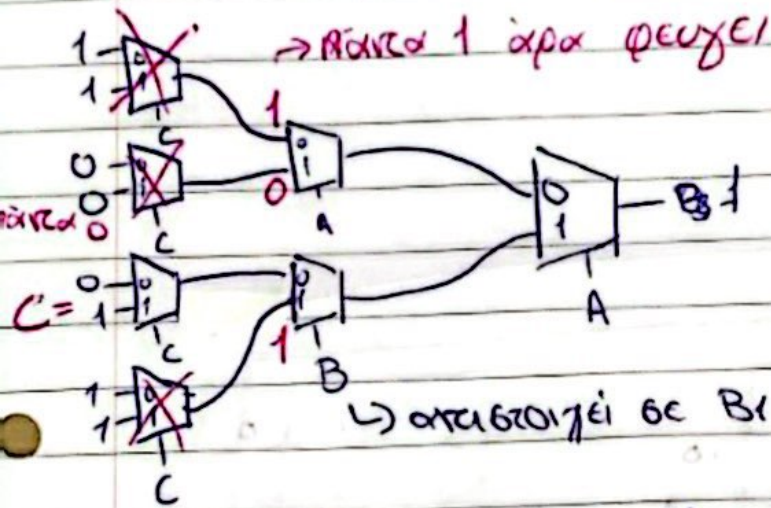 1
1
0
1
C
→ πάντα 1 άρα φεύγει
1
0
0
0
1
C
πάντα 0
0
1
0
A
0
1
1
A
C=
0
1
0
1
C
0
1
1
B
1
1
0
1
C
↳ αντιστοιχεί σε B1